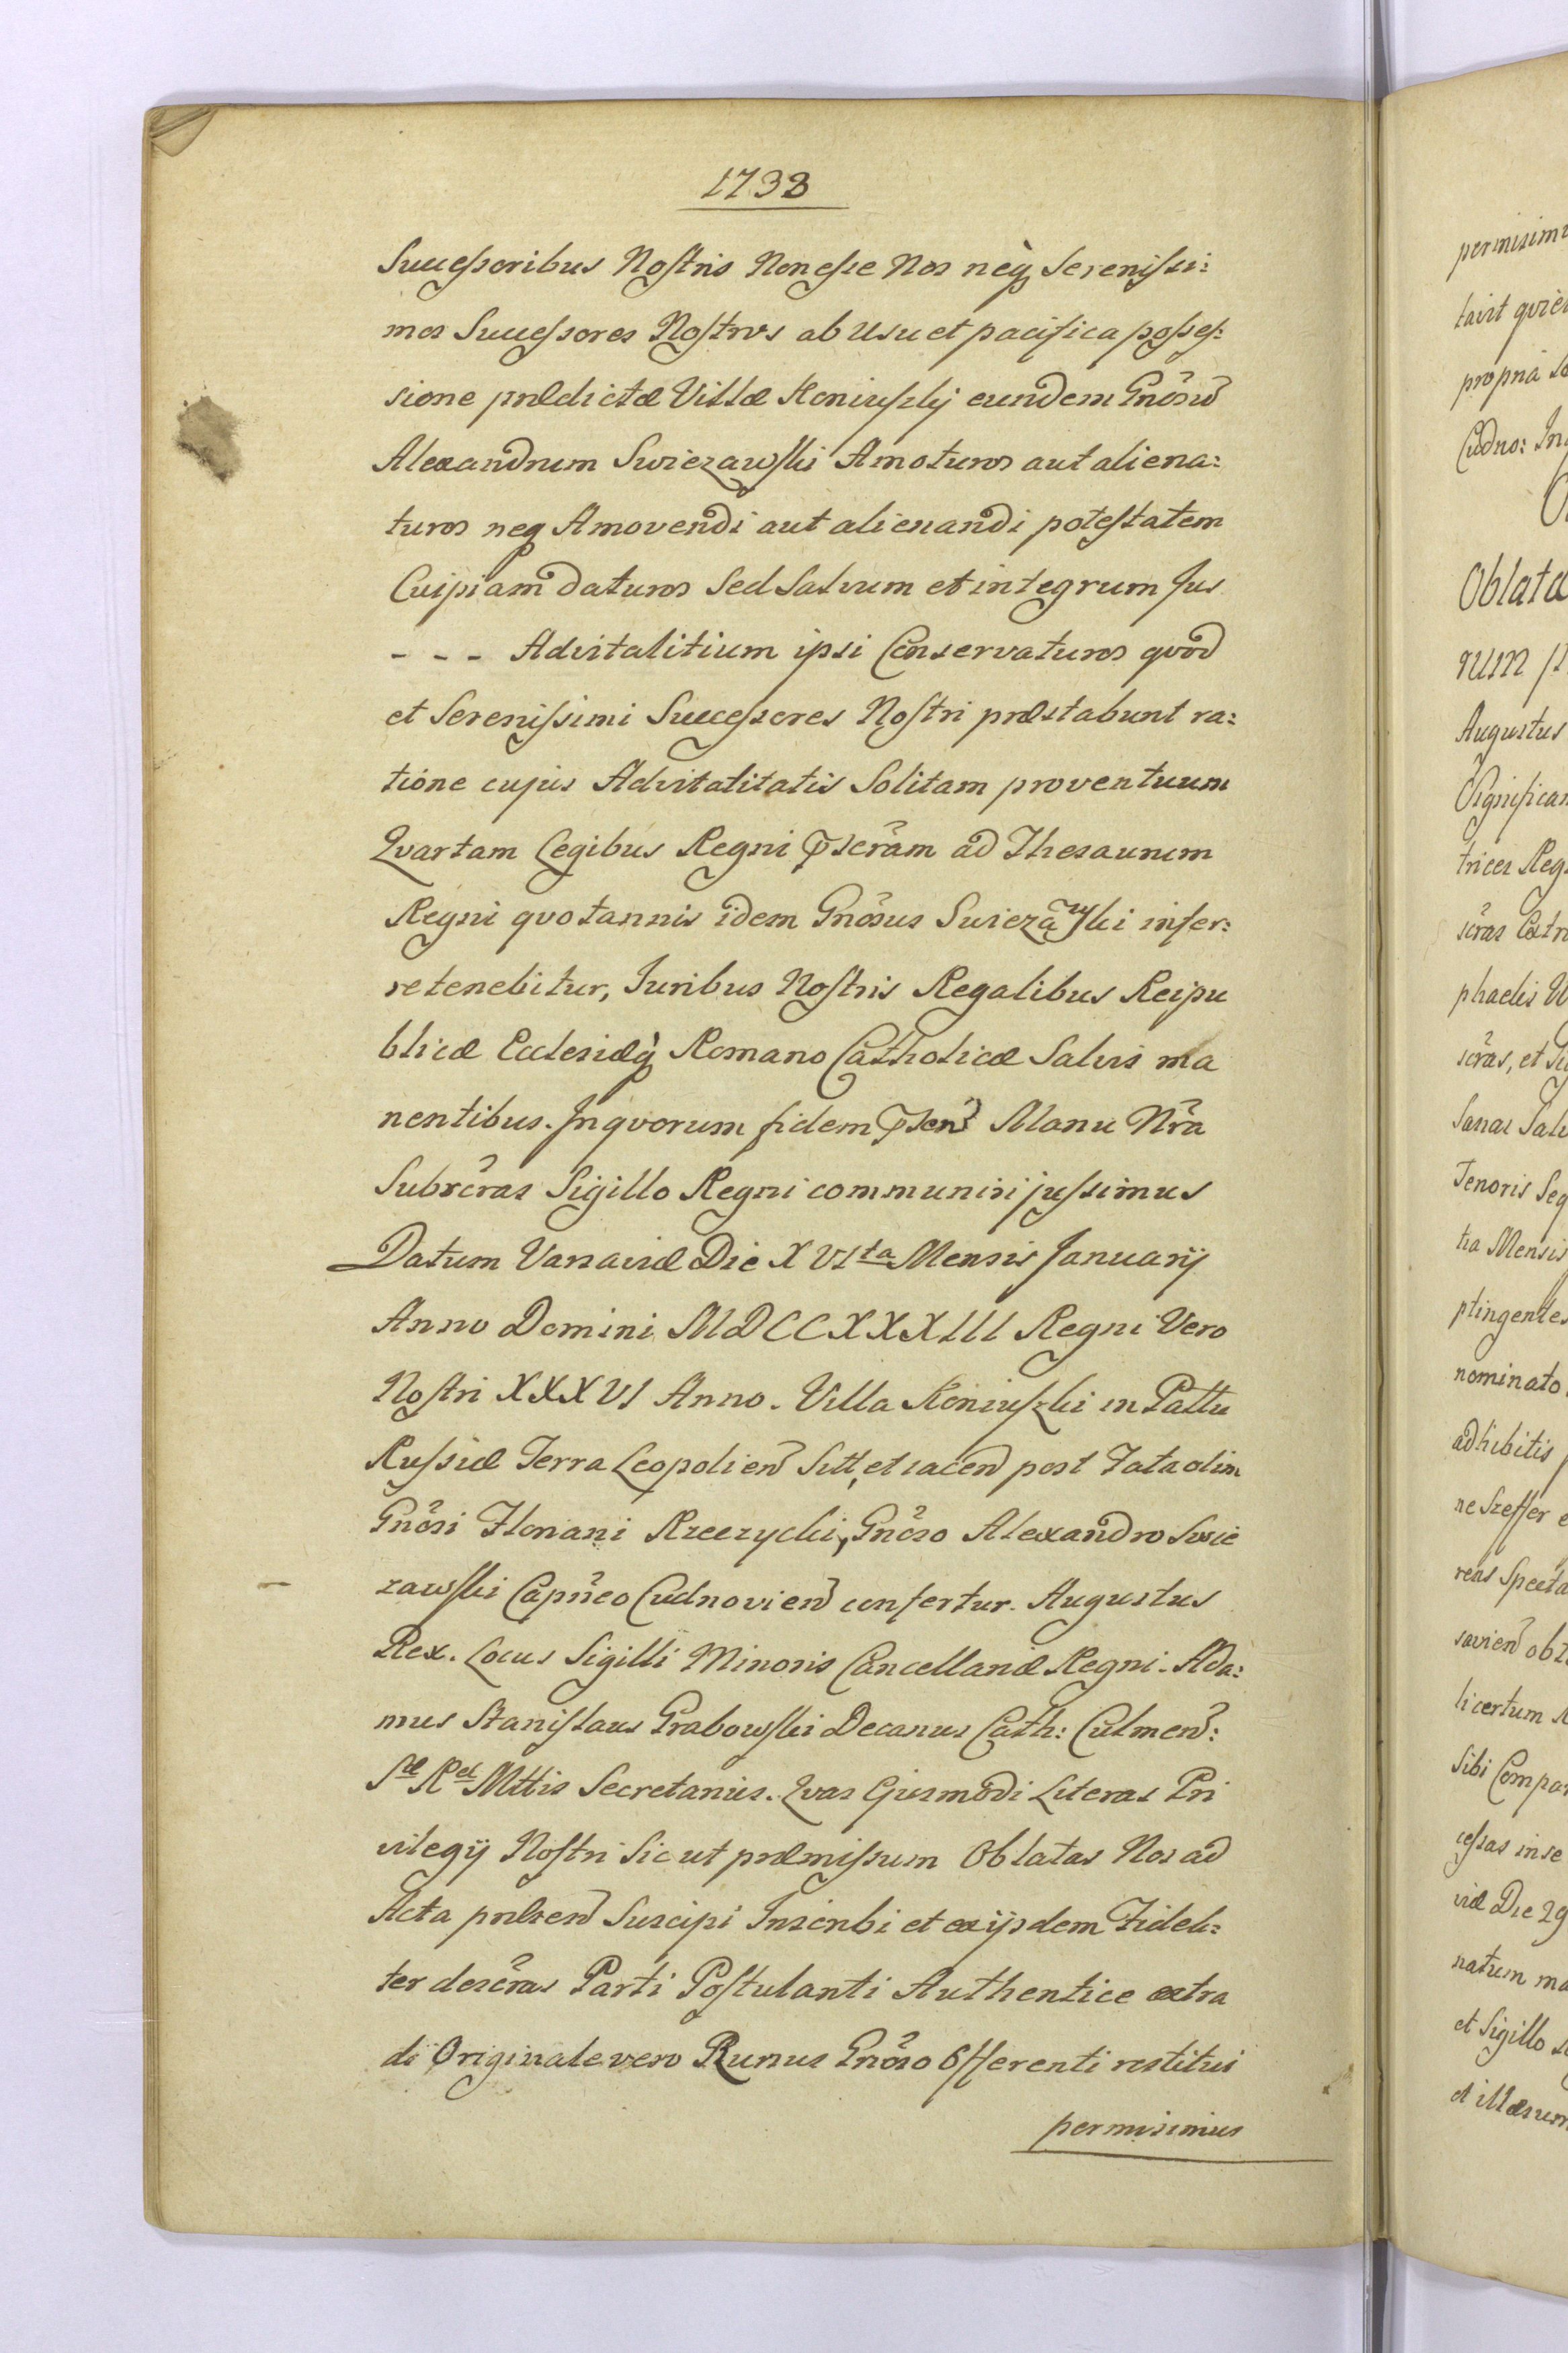 1738
Succeſsoribus Noſtris Non eſse Nos neq̀ Sereniſsi:
mos Succeſsores Noſtros ab Usu et pacifica poſseſ:
sione prædictæ Villæ Koniuſzky eundem Gnõsũ
Alexandrum Swiezawſki Amoturos aut aliena:
turos neq Amovendi aut alienandi poteſtatem
Cuipiam daturos Sed Salvum et integrum Jus
- - - Advitalitium ipsi Conservaturos qvod
et Sereniſsimi Succeſsores Noſtri præstabunt ra:
tione cujus Advitalitatis Solitam proventuum
Qvartam Legibus Regni pscrãm ad Thesaurum
Regni qvotannis idem Gnõsus Swiezawſki infer:
re tenebitur, Juribus Noſtris Regalibus Reipu
blicæ Ecclesiæq̀ Romano Catholicæ Salvis ma
nentibus. In qvorum fidem pseñ Manu Nrã
Subscrãs Sigillo Regni communiri juſsimus
Datum Varsaviæ Die XVIta Mensis Januarij
Anno Domini MDCCXXXIII Regni Vero
Noſtri XXXVI Anno. Villa Koniuſzki in Pallu
Ruſsiæ Terra Leopolieñ Sitt, et iaceñ post Fata olim
Gnõsi Floriani Rzeczycki, Gnõso Alexandro Swie
zawſki Capñeo Cudnovieñ confertur. Augustus
Rex. Locus Sigilli Minoris Cancellariæ Regni. Ada:
mus Staniſlaus Grabowſki Decanus Cath: Culmeñ:
Sæ Ræ Mttis Secretarius. Qvas Ejusmodi Literas Pri
vilegij Noſtri Sic ut præmiſsum Oblatas Nos ad
Acta præseñ Suscipi Inscribi et ex ijsdem Fideli:
ter descrãs Parti Poſtulanti Authentice extra
di Originale vero Rursus Gnõso Offerenti restitui
permisimus
permisim
propria
Cudno: In
Oblata
rum
Augustus
Significam
trices Reg
scrãs Extr
phaelis
scrãs, et
Sanas Salv
Tenoris Seq
tia Mensis
ptingentes
nominato
adhibitis
ne Szeffer
reas Specta
savieñ obt
licertum
Sibi Compar
ceſsas inse
viæ Die 29
natum ma
et Sigillo
et illæsum